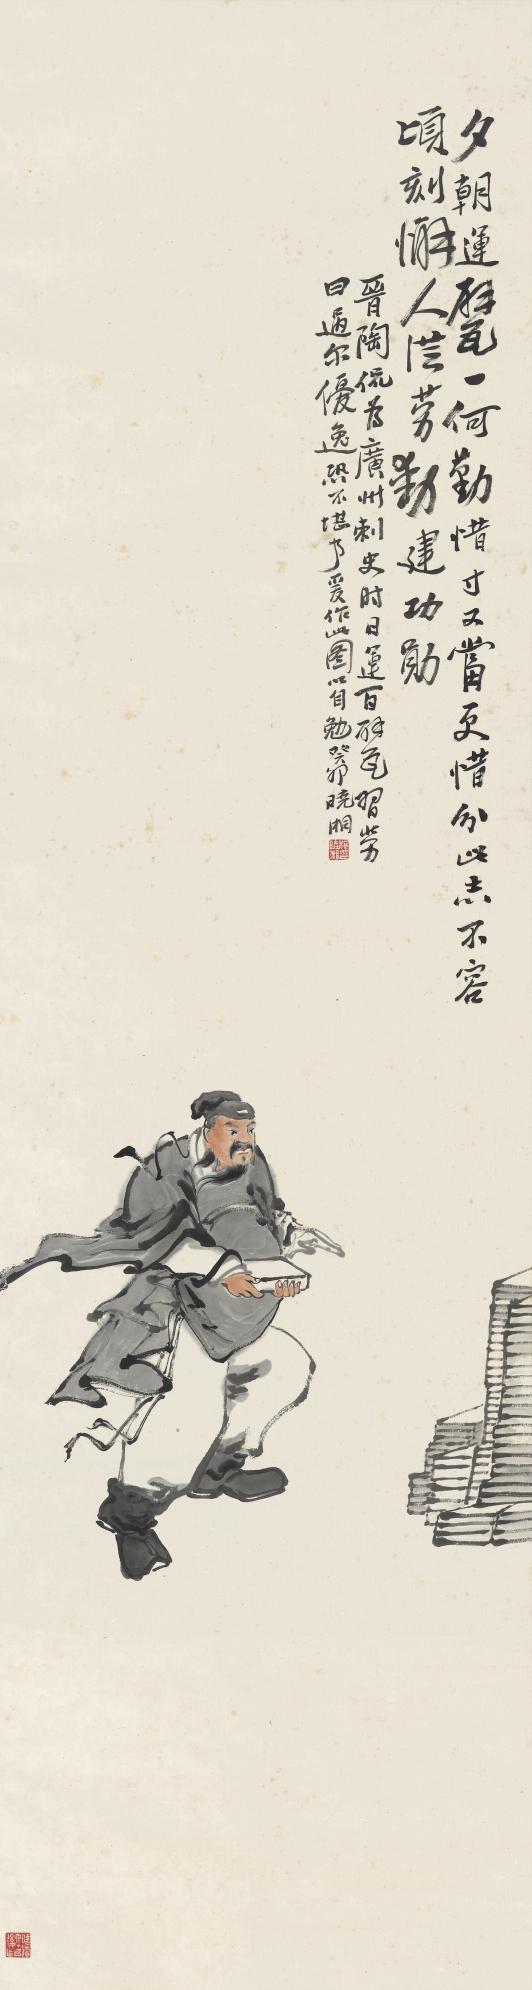 夕朝運甓一何勤惜寸又當更惜分此志不容
頃刻懈人從勞動建功勛
晉陶侃為廣州刺史时日運百甓習勞
曰過尔優逸恐不堪事爰作此圖以自勉癸卯曉